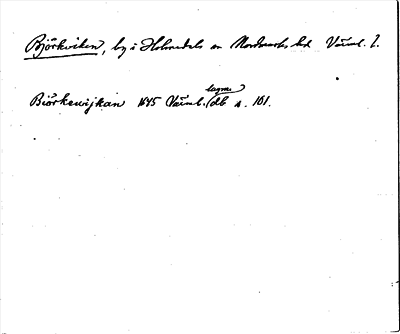 Björkviken, by i Holmedals sn Nordmarks hd Värml. l.
lagm.
Biörkewijkan 1645 Värml. (db n. 101.